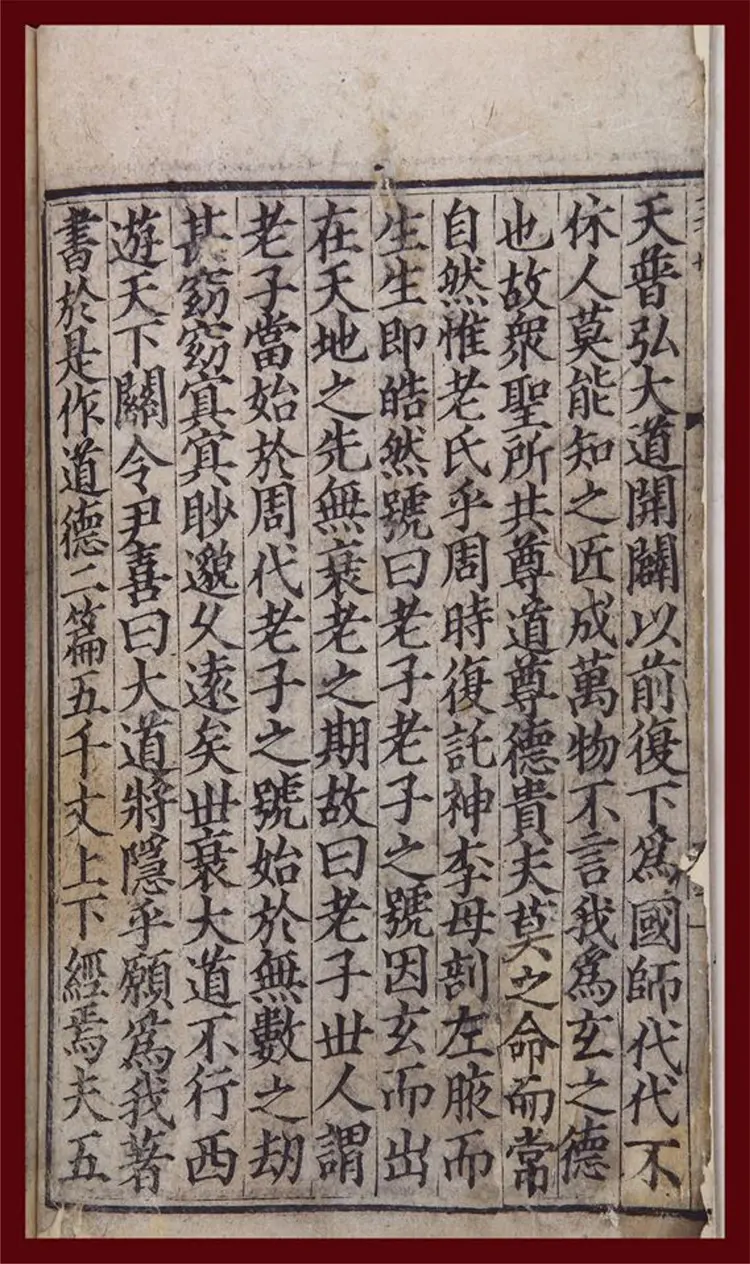 天普弘大道開闢以前復下為國師代代不
休人莫能知之匠成萬物不言我為玄之德
也故衆聖所共尊道尊德貴夫莫之命而常
自然惟老氏乎周時復託神李母剖左腋而
生生即皓然號曰老子老子之號因玄而出
在天地之先無衰老之期故曰老子丗人謂
老子當始於周代老子之號始於無數之劫
甚窈窈冥冥眇邈久遠矣丗衰大道不行西
遊天下關令尹喜曰大道將隱乎願為我著
書於是作道德二篇五千文上下經焉夫五